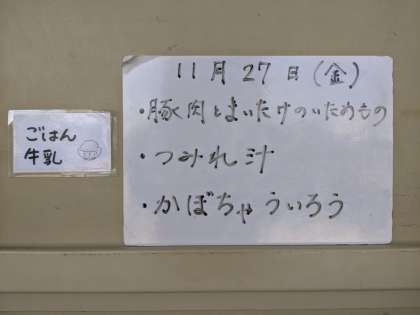 ごはん
牛乳
11月27日(金)
・豚肉とまいたけのいためもの
・つみれ汁
・かぼちゃういろう